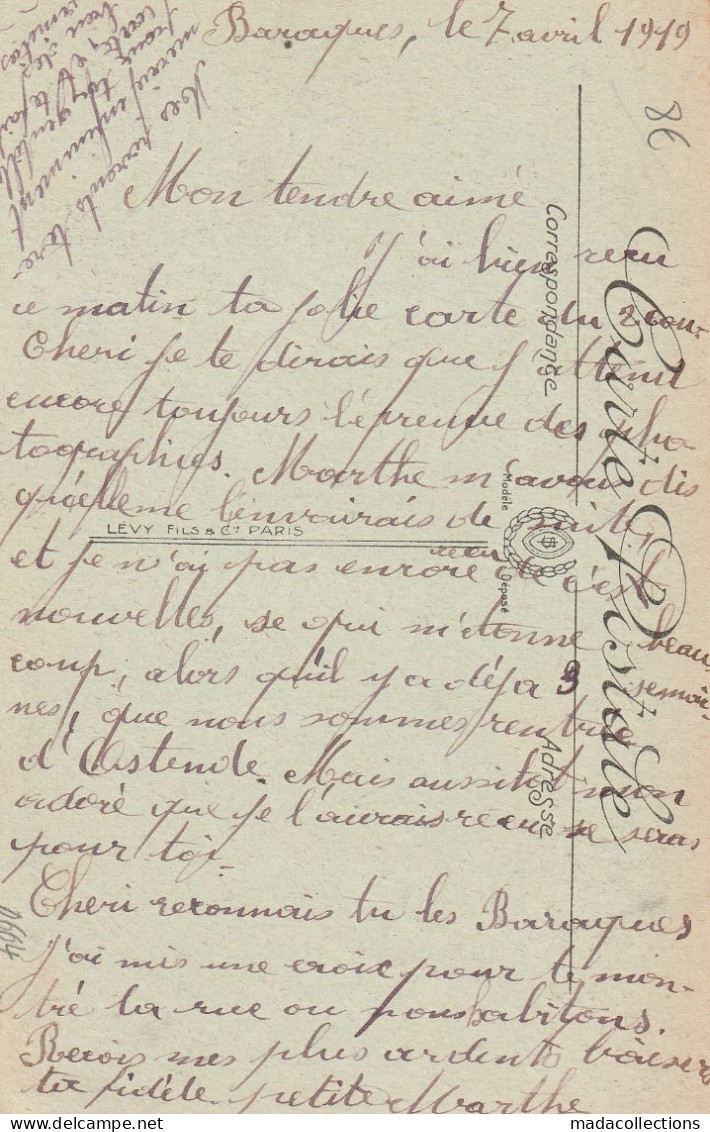 Baraques, le 7 avril 1919
Mon tendre aimé
J'ai bien reçu
ce matin ta jolie carte du 2 cou-
Cheri je te dirais que j'attend
encore toujours l'épreuve des pho
tographies. Marthe m'avais dis
qu'elle me l'envoirais de suite,
et je n'ai pas encore reçu de c'est
nouvelles, se qui m'étonne beau
coup, alors qu'il y a déja 3 semai-
nes, que nous sommes rentrée
d'Ostende. Mais aussitot mon
adoré que je l'aurais reçu se seras
pour toi.
Cheri reconnais tu les Baraques
J'ai mis une croix pour te mon-
tré la rue ou nous habitons.
Recois mes plus ardents baisers
ta fidéle petite Marthe
Mes parents te re-
mercie infiniment
pour ton gentille
carte et te fait
bien des
amitiés
Carte Postale
Correspondance
Adresse
Modèle
Déposé
LÉVY FILS & Cie PARIS
86
madacollections.com